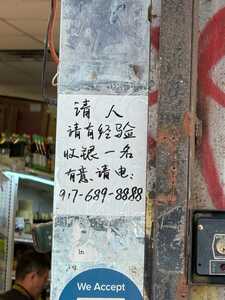 请人
请有经验
收银一名
有意请电:
917-689-8888
We Accept